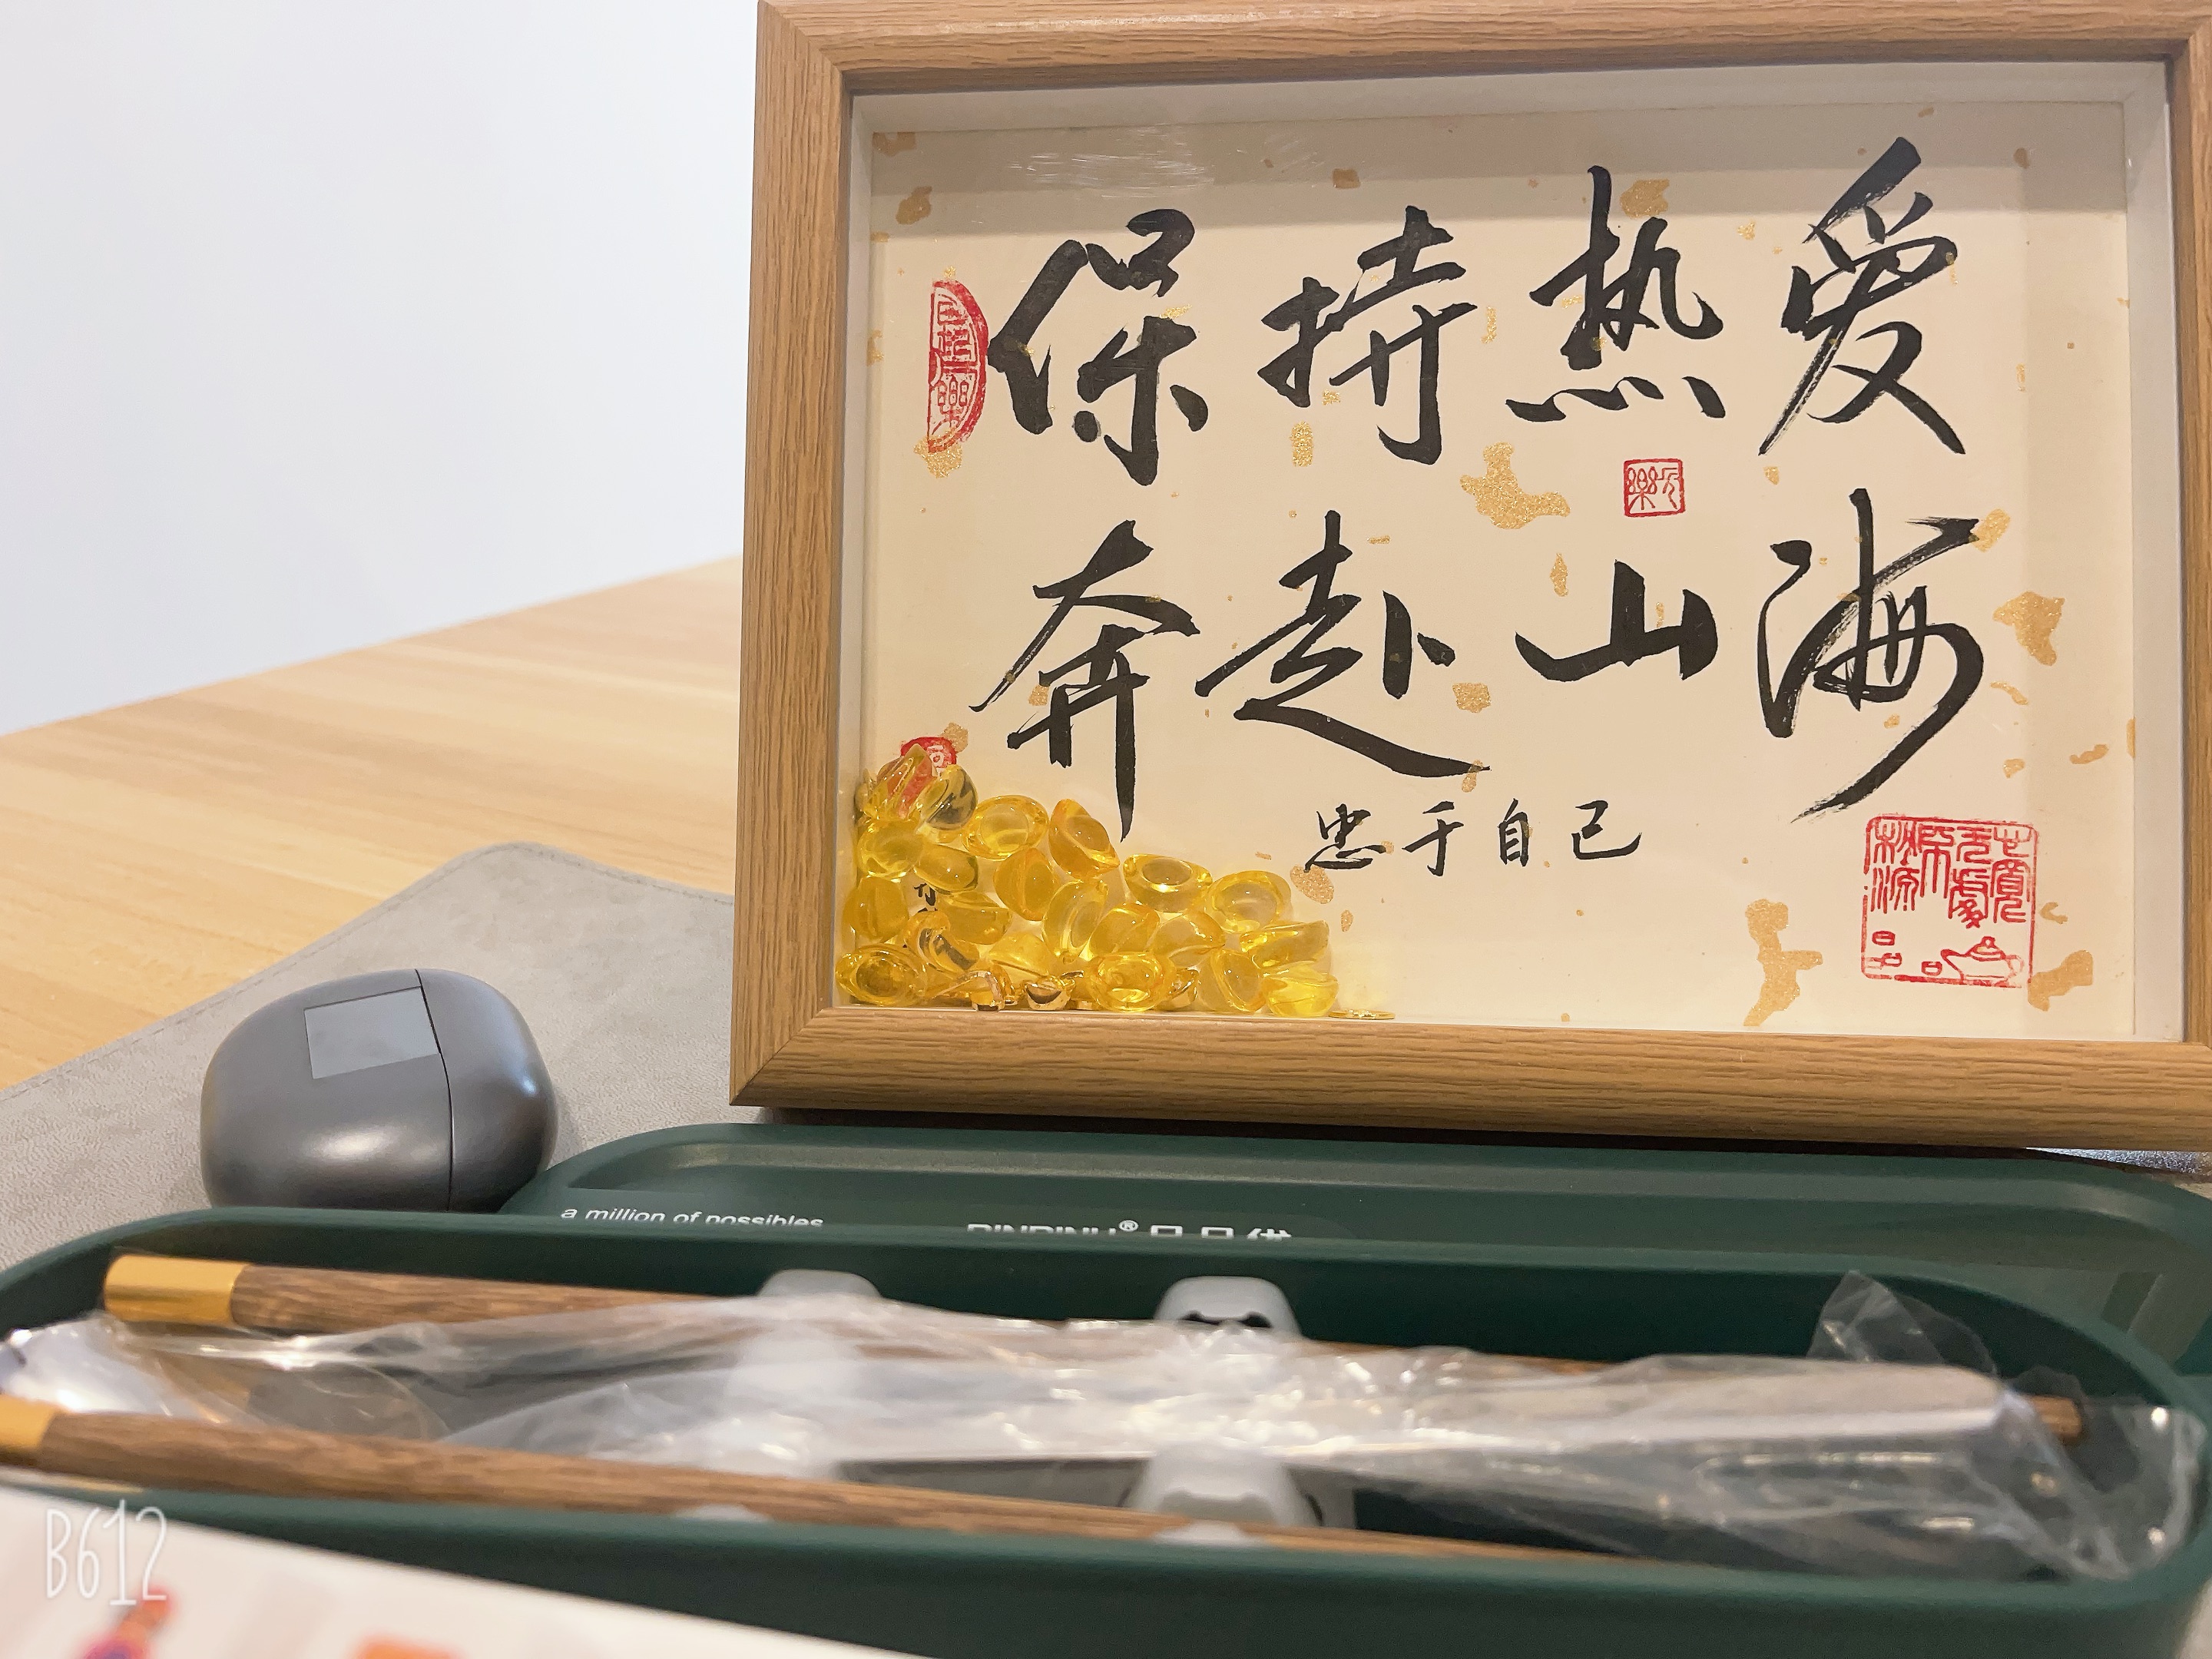 保持热爱
奔赴山海
忠于自己
a million of possibles
B612